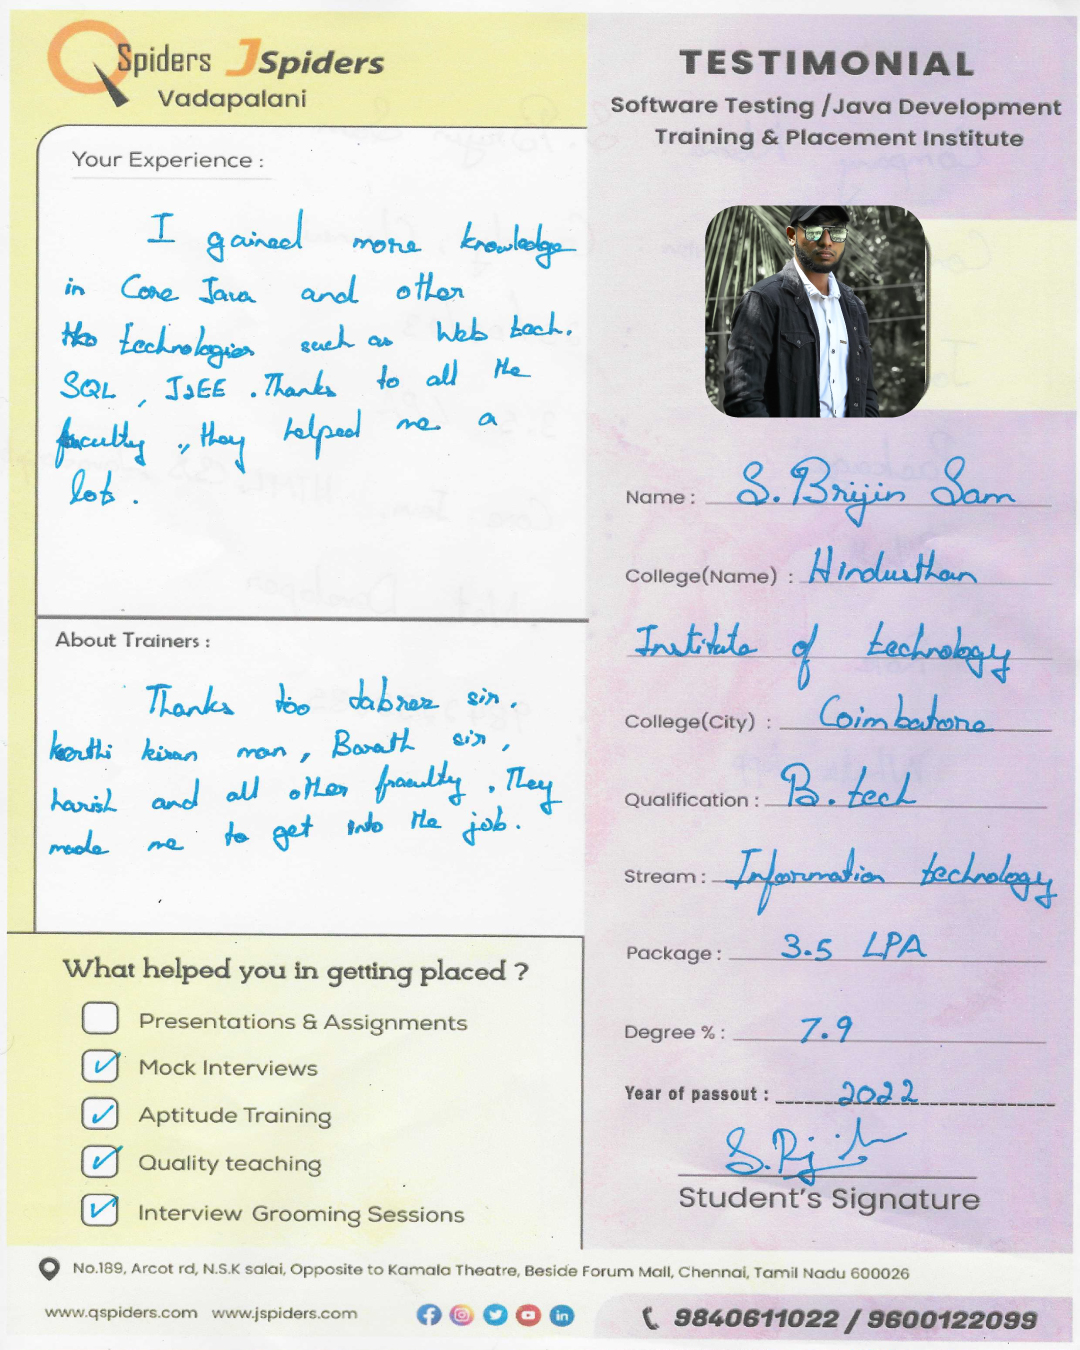 QSpiders JSpiders
Vadapalani
TESTIMONIAL
Software Testing /Java Development
Training & Placement Institute
Your Experience :
I gained more knowledge
in Core Java and other
technologies such as Web tech.
SQL , J2EE . Thanks to all the
faculty ., they helped me a
lots .
About Trainers :
Thanks too tabrez sir,
keerthi kiran man, Barath sir,
harish and all other fraculty . They
made me to get into the job.
What helped you in getting placed ?
Presentations & Assignments
Mock Interviews
Aptitude Training
Quality teaching
Interview Grooming Sessions
Name : S. Brijin Sam
College(Name) : Hindusthan
Institute of technology
College(City) : Coimbatore
Qualification : B.tech
Stream : Information technology
Package : 3.5 LPA
Degree % : 7.9
Year of passout : 2022
Student's Signature
No.189, Arcot rd, N.S.K salai, Opposite to Kamala Theatre, Beside Forum Mall, Chennai, Tamil Nadu 600026
www.qspiders.com www.jspiders.com
9840611022 / 9600122099